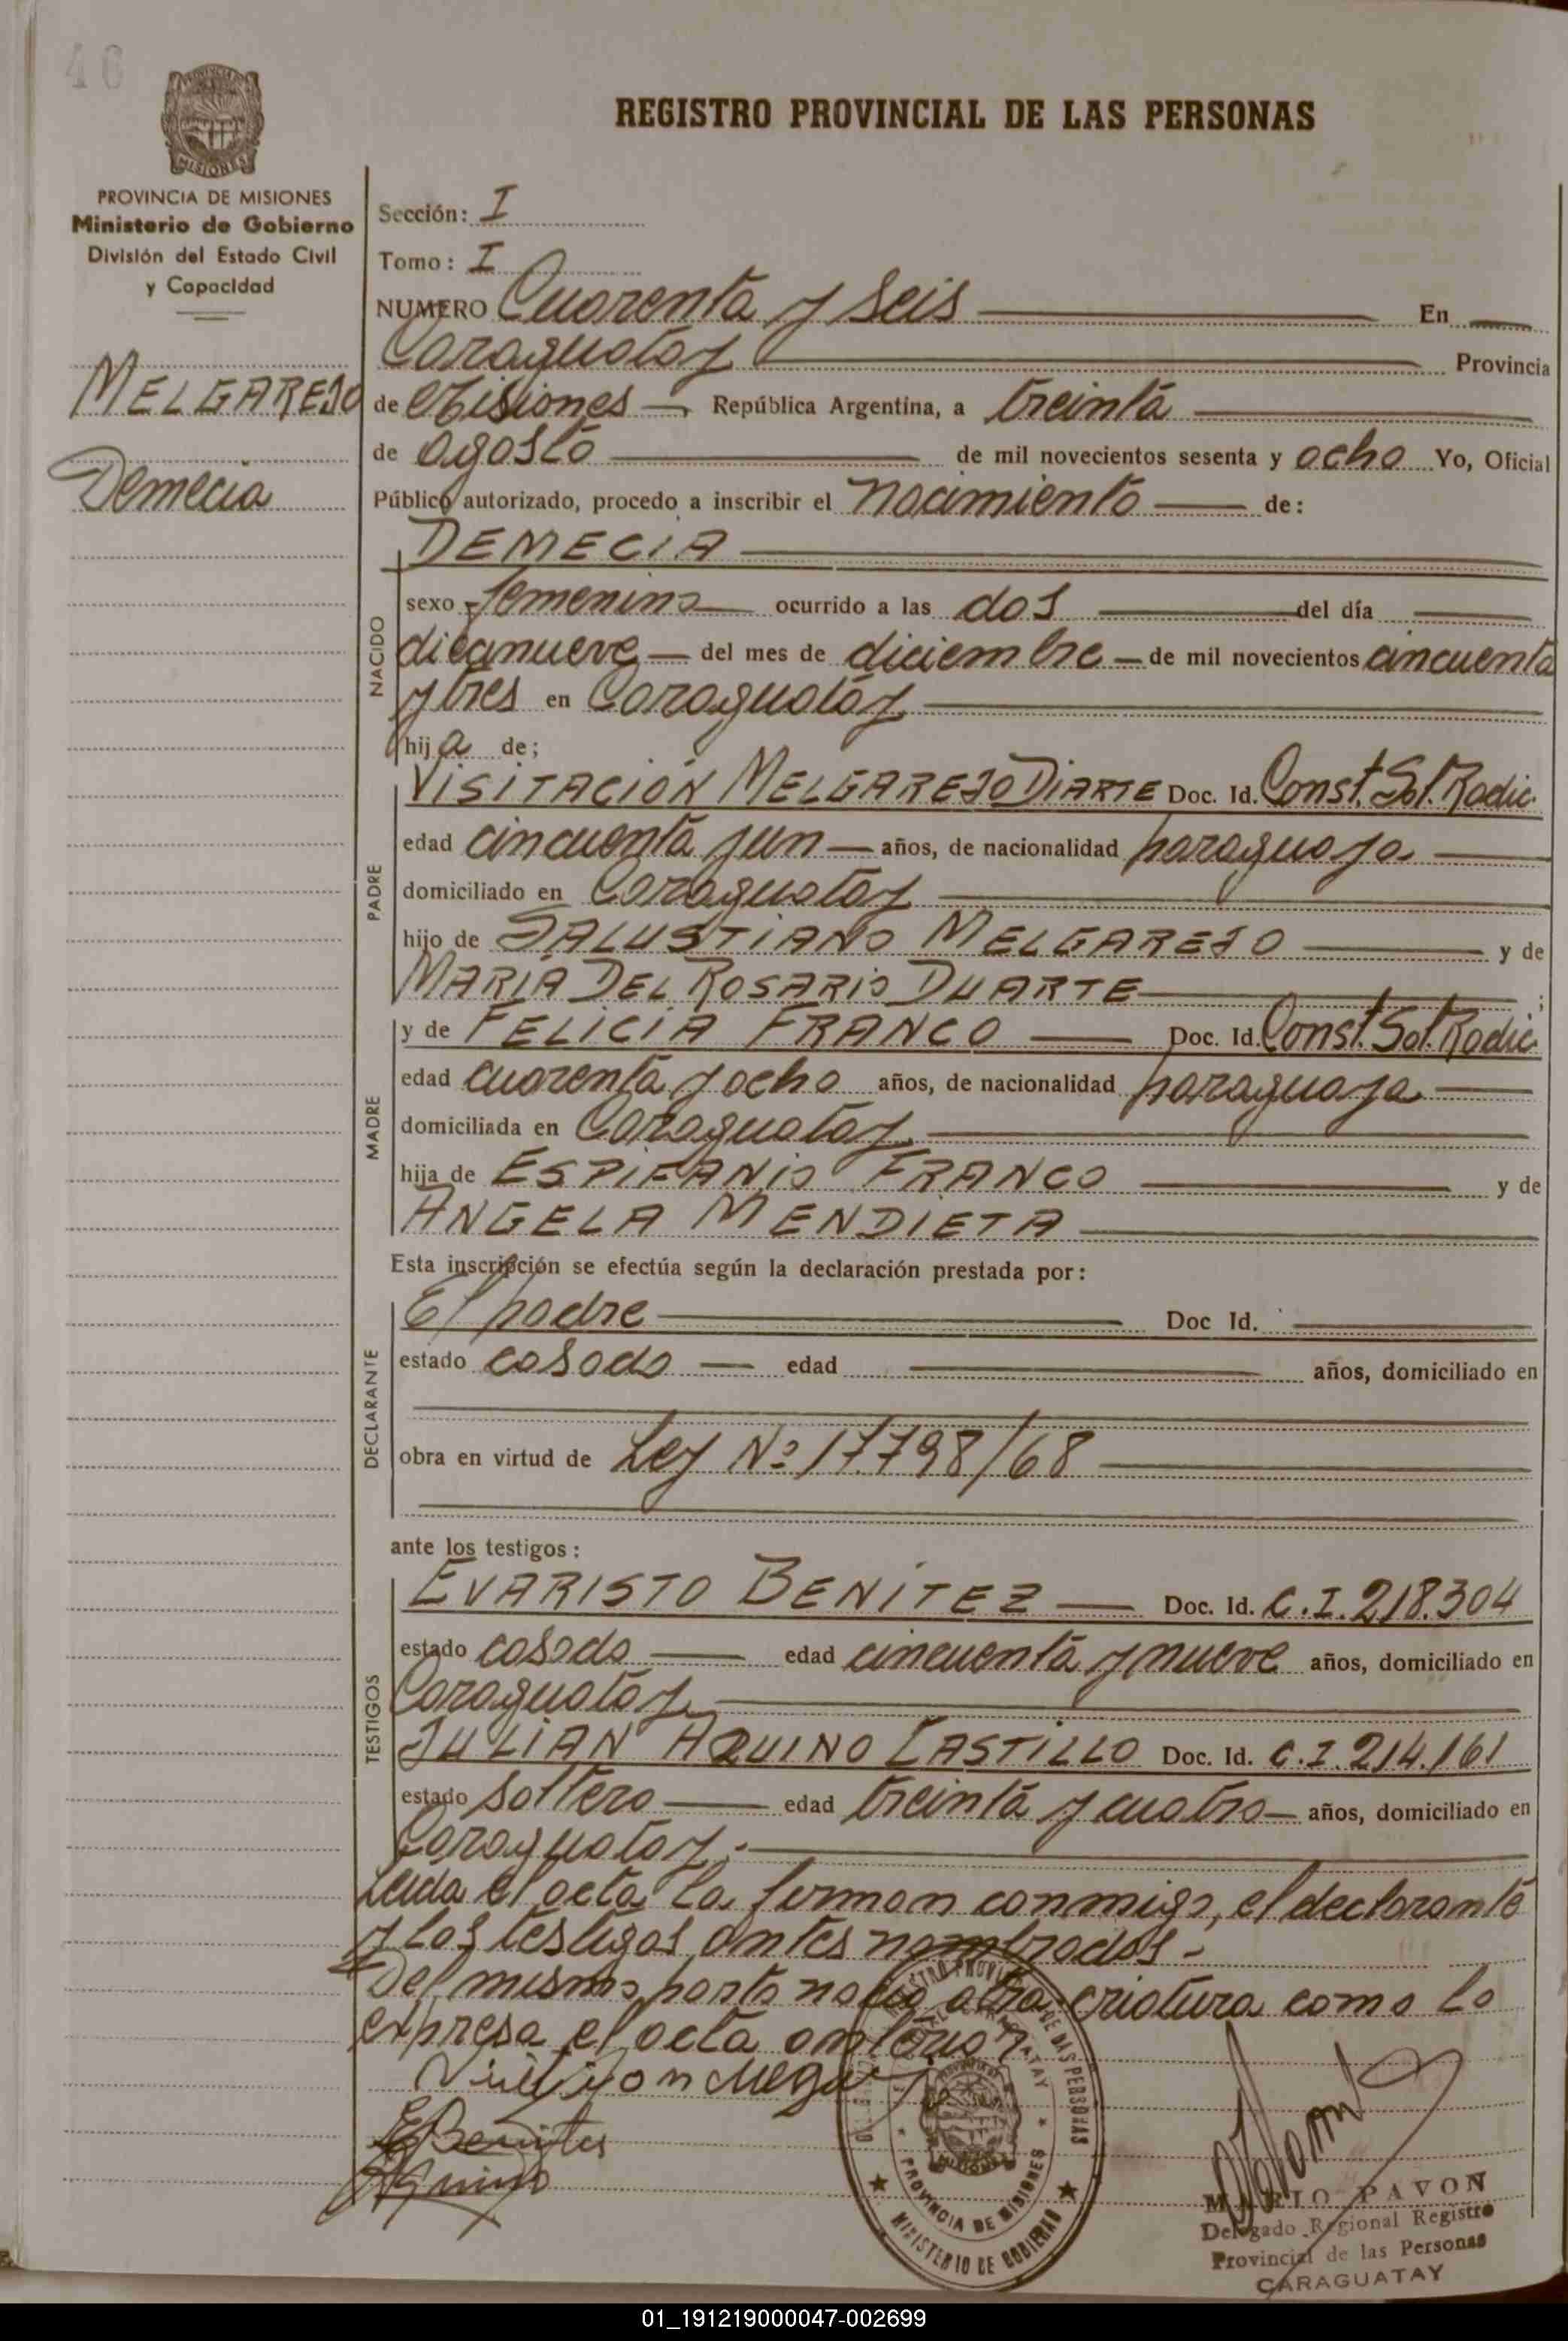 46
PROVINCIA DE MISIONES
Ministerio de Gobierno
División del Estado Civil
y Capacidad
MELGAREJO
Demecia
REGISTRO PROVINCIAL DE LAS PERSONAS
Sección: I
Tomo: I
NUMERO Cuarenta y seis En
Caraguatay Provincia
de Misiones República Argentina, a treinta
de agosto de mil novecientos sesenta y ocho Yo, Oficial
Público autorizado, procedo a inscribir el nacimiento de:
DEMECIA
NACIDO
sexo femenino ocurrido a las dos del día
diecinueve del mes de diciembre de mil novecientos cincuenta
y tres en Caraguatay
hija de;
PADRE
VISITACION MELGAREJO DIARTE Doc. Id. Const. Sol. Radic.
edad cincuenta y un años, de nacionalidad paraguaya
domiciliado en Caraguatay
hijo de SALUSTIANO MELGAREJO y de
MARIA DEL ROSARIO DUARTE ;
MADRE
y de FELICIA FRANCO Doc. Id. Const. Sol. Radic.
edad cuarenta y ocho años, de nacionalidad paraguaya
domiciliada en Caraguatay
hija de ESPIFANIO FRANCO y de
ANGELA MENDIETA
Esta inscripción se efectúa según la declaración prestada por:
DECLARANTE
El padre Doc Id.
estado casado edad años, domiciliado en
obra en virtud de Ley Nº 17.798/68
ante los testigos:
TESTIGOS
EVARISTO BENITEZ Doc. Id. C.I. 218.304
estado casado edad cincuenta y nueve años, domiciliado en
Caraguatay
JULIAN AQUINO CASTILLO Doc. Id. C.I. 214.161
estado soltero edad treinta y cuatro años, domiciliado en
Caraguatay.
Leida el acta la firman conmigo, el declarante
y los testigos antes nombrados.-
Del mismo parto nacio otra criatura como lo
expresa el acta anterior
EBenites
Aquino
PROVINCIA DE MISIONES
MINISTERIO DE GOBIERNO
MARIO PAVON
Delegado Regional Registro
Provincial de las Personas
CARAGUATAY
01_191219000047-002699